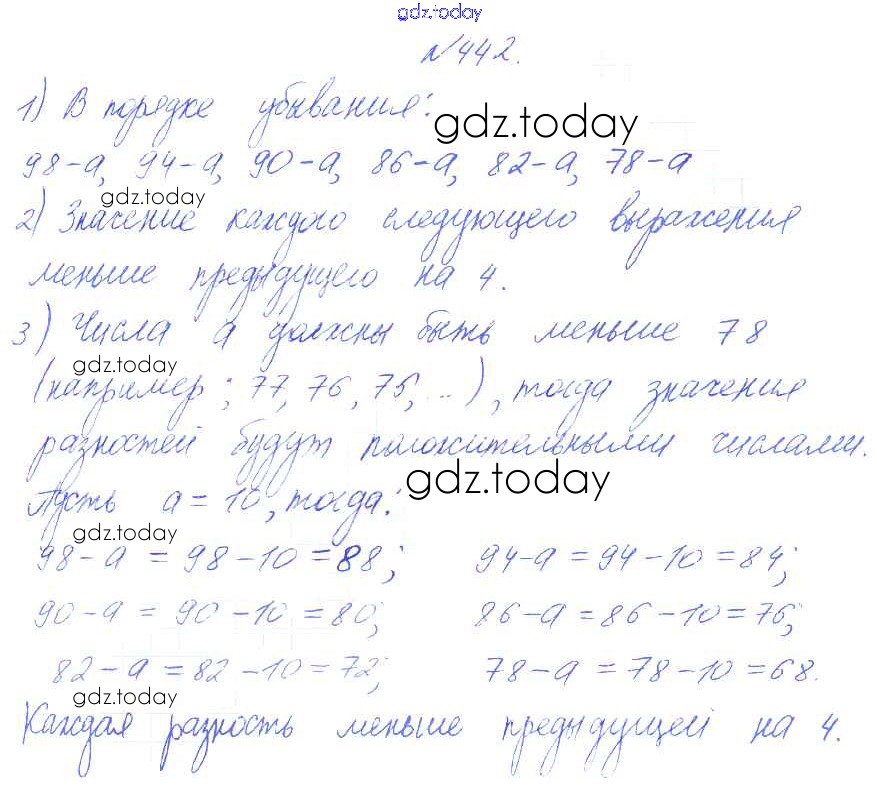 gdz.today
№442.
1) В порядке убывания:
gdz.today
98-а, 94-а, 90-а, 86-а, 82-а, 78-а
gdz.today
2) Значение каждого следующего выражения
меньше предыдущего на 4.
3) Числа а должны быть меньше 78
gdz.today
(например; 77, 76, 75, ...), тогда значения
разностей будут положительными числами.
Пусть а = 10, тогда:
gdz.today
gdz.today
98-а = 98-10 = 88; 94-а = 94-10 = 84;
90-а = 90-10 = 80; 86-а = 86-10 = 76;
82-а = 82-10 = 72; 78-а = 78-10 = 68.
gdz.today
Каждая разность меньше предыдущей на 4.